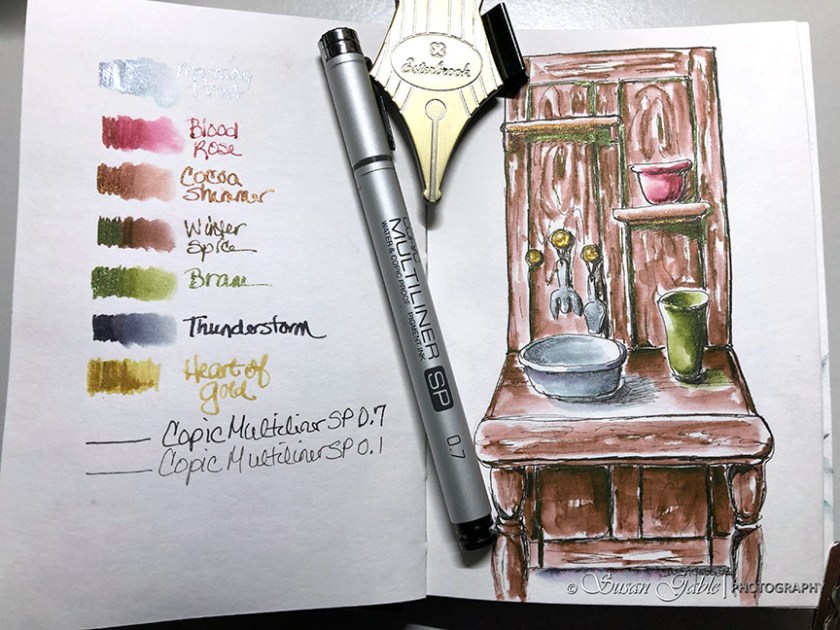 Blood
Rose
Cocoa
Shimmer
Winter
Spice
Thunderstorm
Heart of
gold
Copic Multiliner SP 0.7
Copic Multiliner SP 0.1
Esterbrook
COPIC
MULTILINER SP 0.7
WATER & COPIC PROOF PIGMENT INK
© Susan Gable PHOTOGRAPHY